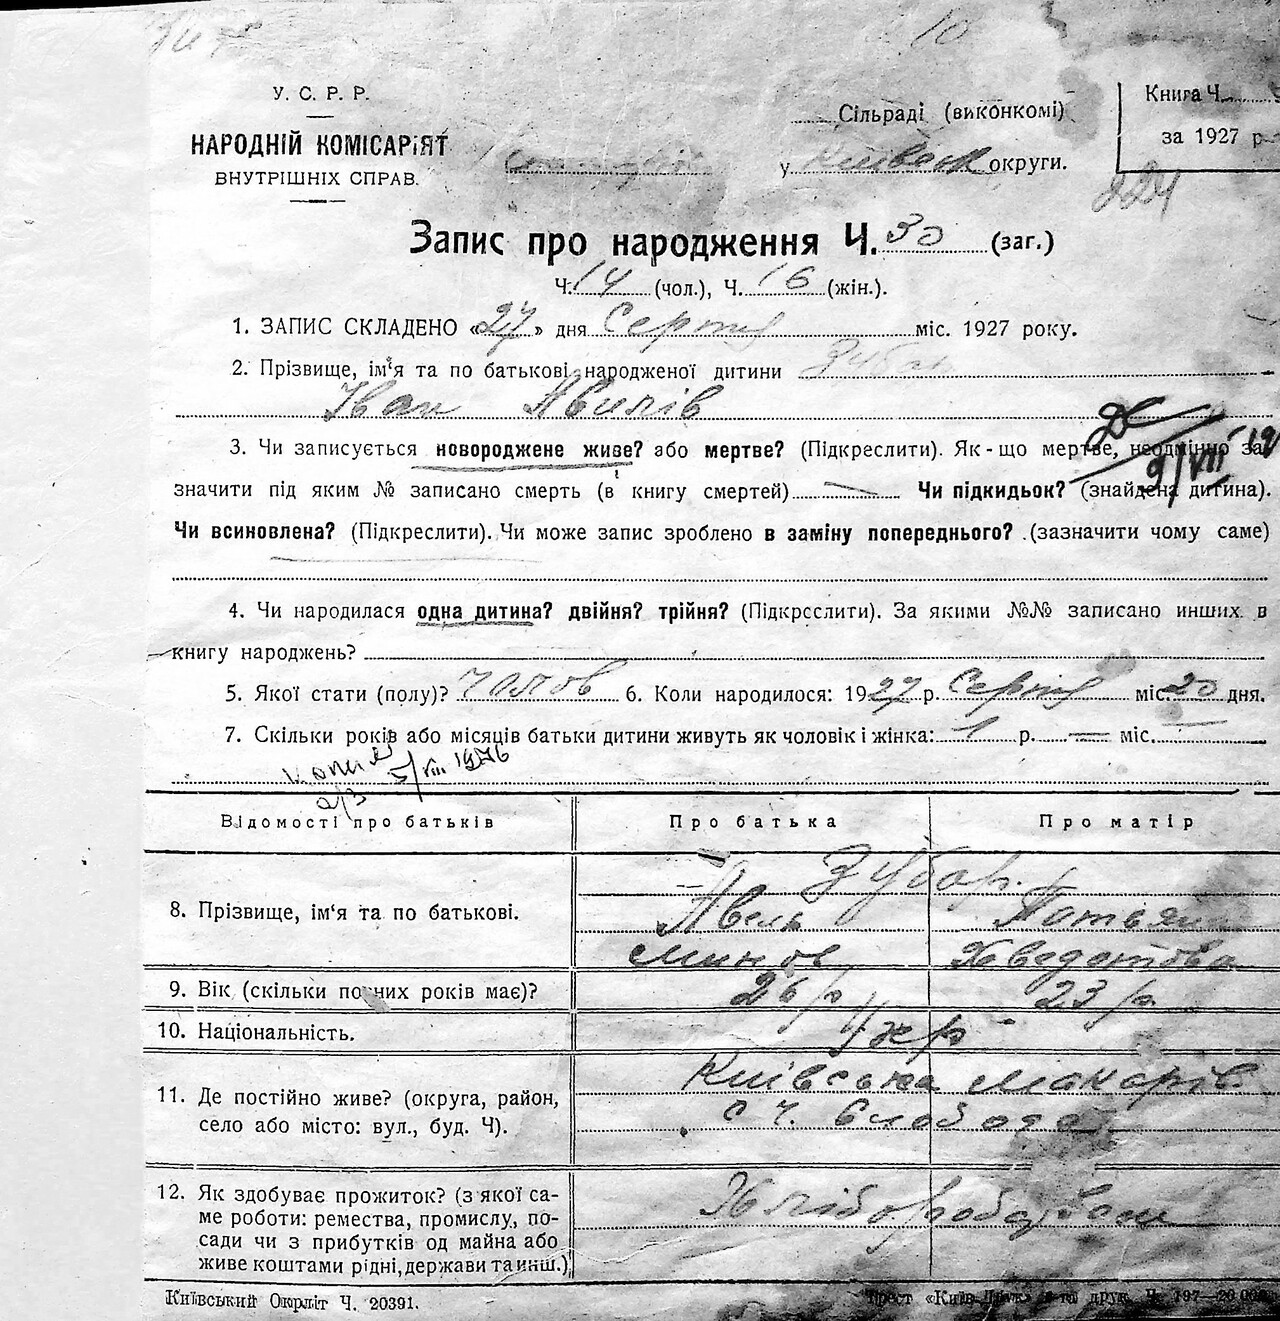 У. С. Р. Р.
НАРОДНІЙ КОМІСАРІЯТ
ВНУТРІШНІХ СПРАВ.
Сільраді (виконкомі)
у Київськ округи.
Книга Ч.
за 1927 р.
224
10
Запис про народження Ч. 30 (заг.)
Ч. 14 (чол.), Ч. 16 (жін.).
1. ЗАПИС СКЛАДЕНО «27» дня Серпня міс. 1927 року.
2. Прізвище, ім'я та по батькові народженої дитини Зубар
Іван Авилів
3. Чи записується новороджене живе? або мертве? (Підкреслити). Як-що мертве, неодмінно за-
значити під яким № записано смерть (в книгу смертей) Чи підкидьок? (знайдена дитина).
Чи всиновлена? (Підкреслити). Чи може запис зроблено в заміну попереднього? (зазначити чому саме)
4. Чи народилася одна дитина? двійня? трійня? (Підкреслити). За якими №№ записано инших в
книгу народжень?
5. Якої стати (полу)? чолов 6. Коли народилося: 1927 р. Серпня міс. 20 дня.
7. Скільки років або місяців батьки дитини живуть як чоловік і жінка: 1 р. — міс. —
5/VIII 1976
Відомості про батьків Про батька Про матір
8. Прізвище, ім'я та по батькові.
Зубар.
Авель Татьяна
Минов Хведотова
9. Вік (скільки повних років має)? 26 р 23 р
10. Національність. Укр
11. Де постійно живе? (округа, район,
село або місто: вул., буд. Ч).
Київська Макарів.
с Ч. Слобода
12. Як здобуває прожиток? (з якої са-
ме роботи: ремества, промислу, по-
сади чи з прибутків од майна або
живе коштами рідні, держави та инш.)
Хліборобством
Київський Окрліт Ч. 20391.
Трест «Київ-Друк»